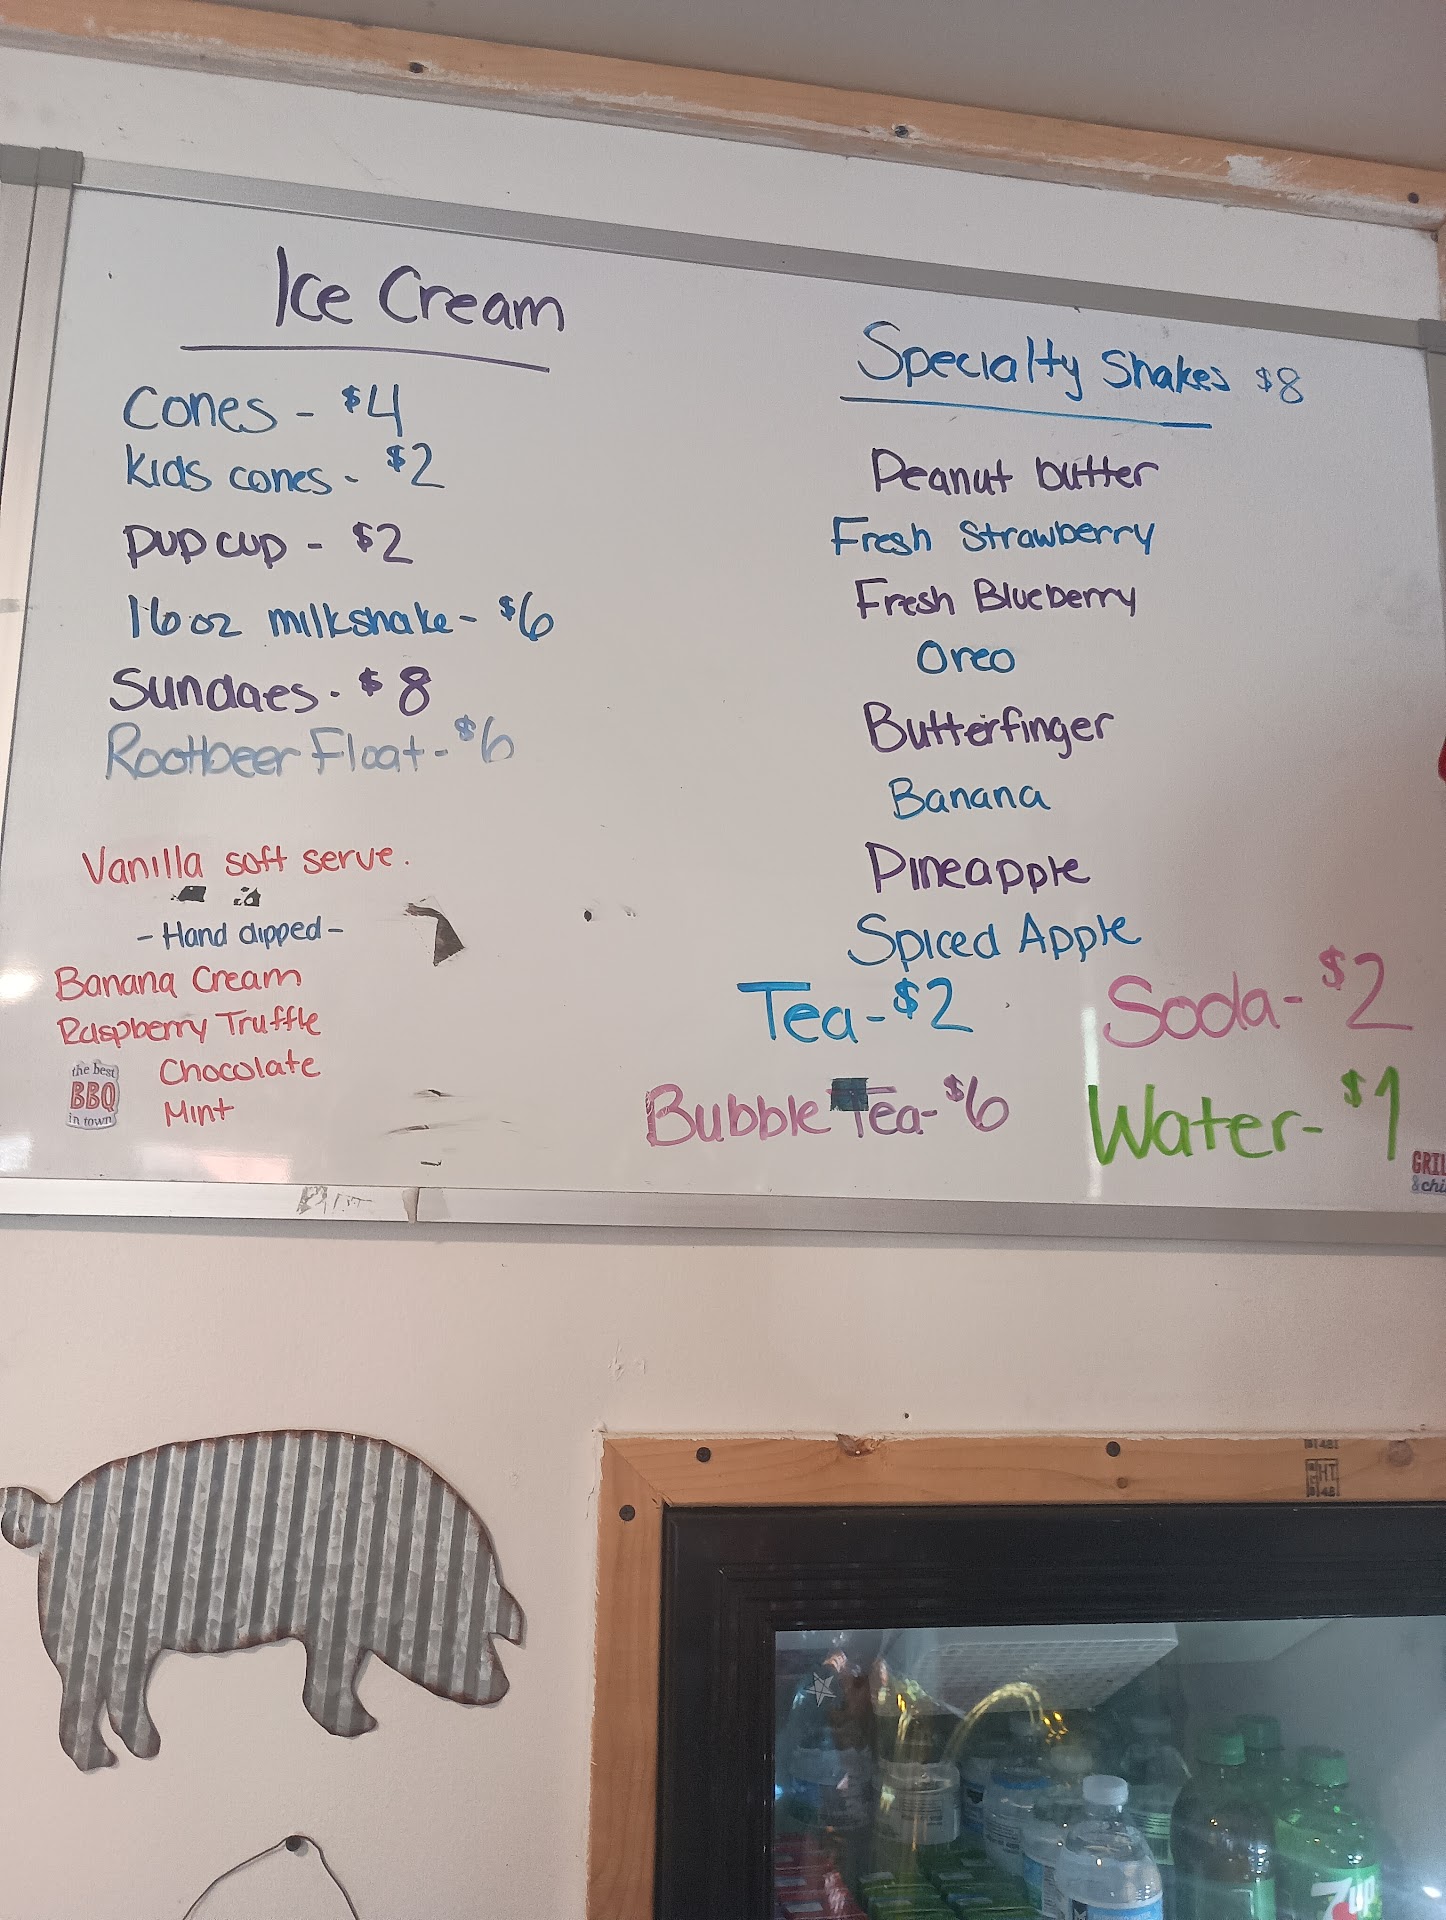 Ice Cream
Cones - $4
Kids cones - $2
pup cup - $2
16 oz milkshake - $6
Sundaes - $8
Rootbeer Float - $6
Vanilla soft serve.
- Hand dipped -
Banana Cream
Raspberry Truffle
Chocolate
Mint
the best
BBQ
in town
Specialty Shakes $8
Peanut butter
Fresh Strawberry
Fresh Blueberry
Oreo
Butterfinger
Banana
Pineapple
Spiced Apple
Tea - $2
Soda - $2
Bubble Tea - $6
Water - $1
7up